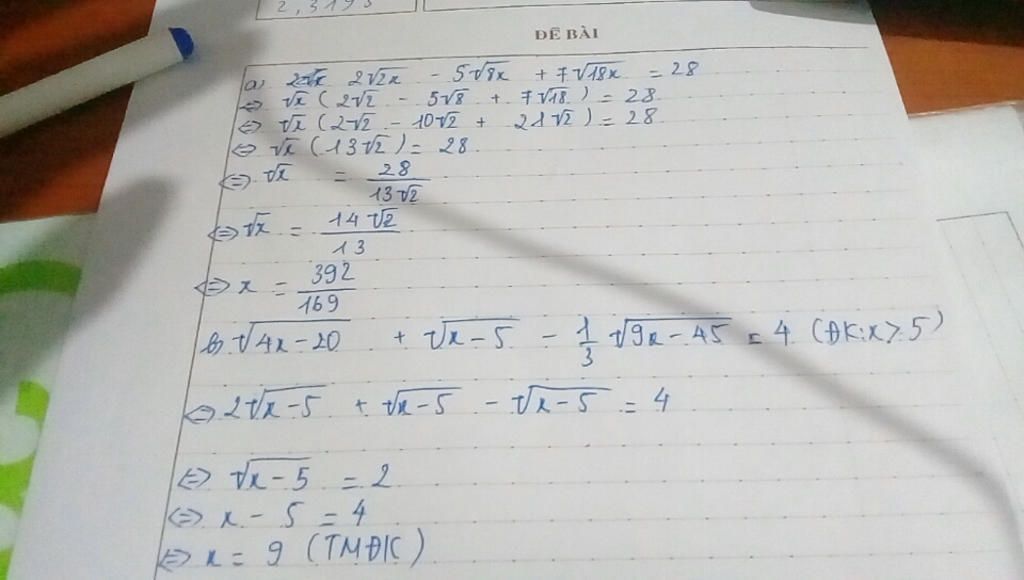 2,3195
ĐỀ BÀI
a) 2√x 2√2x - 5√8x + 7√18x = 28
⇔ √x (2√2 - 5√8 + 7√18) = 28
⇔ √x (2√2 - 10√2 + 21√2) = 28
⇔ √x (13√2) = 28
⇔ √x = 28/13√2
⇔ √x = 14√2/13
⇔ x = 392/169
b) √4x-20 + √x-5 - 1/3 √9x-45 = 4 (ĐK: x ≥ 5)
⇔ 2√x-5 + √x-5 - √x-5 = 4
⇔ √x-5 = 2
⇔ x - 5 = 4
⇔ x = 9 (TMĐK)